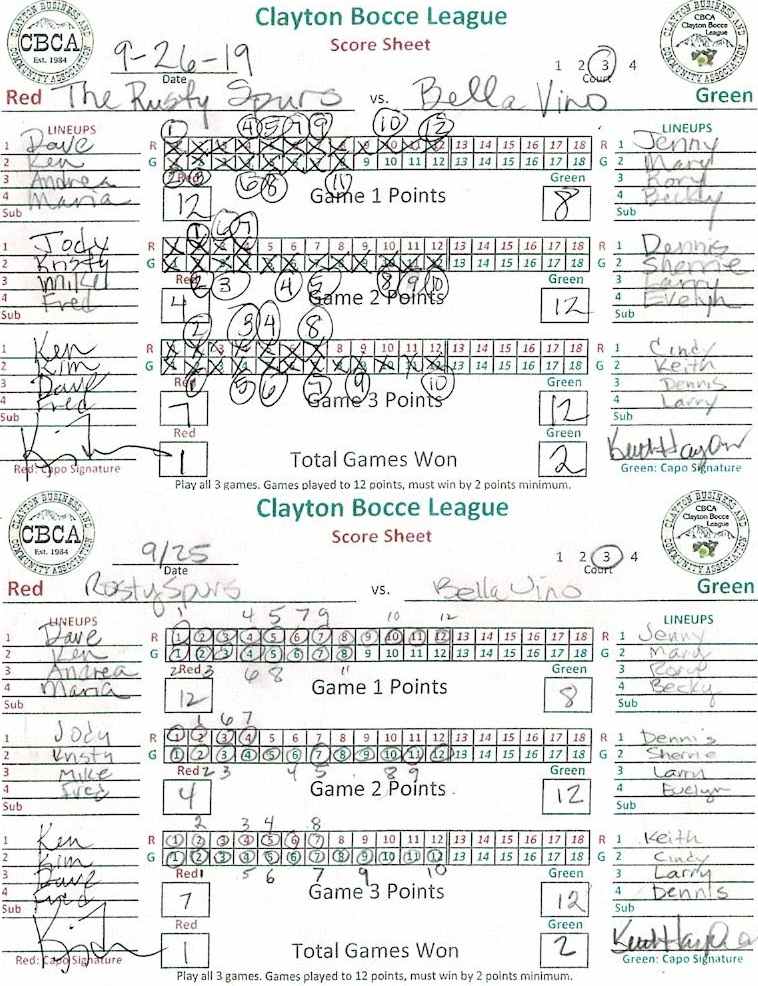 Clayton Bocce League
Score Sheet
CLAYTON BUSINESS AND COMMUNITY ASSOCIATION
CBCA
Est. 1984
CBCA
Clayton Bocce
League
9-26-19
Date
1 2 3 4
Court
Red The Rusty Spurs vs. Bella Vino Green
LINEUPS
LINEUPS
1 Dave
2 Ken
3 Andrea
4 Maria
Sub
1 4 5 7 9 10 12
R 1 2 3 4 5 6 7 8 9 10 11 12 13 14 15 16 17 18 R
G 1 2 3 4 5 6 7 8 9 10 11 12 13 14 15 16 17 18 G
2 3 6 8 11
Red
Green
12 Game 1 Points 8
1 Jenny
2 Mary
3 Rory
4 Becky
Sub
1 Jody
2 Kristy
3 Mike
4 Fred
Sub
1 6 7
R 1 2 3 4 5 6 7 8 9 10 11 12 13 14 15 16 17 18 R
G 1 2 3 4 5 6 7 8 9 10 11 12 13 14 15 16 17 18 G
2 3 4 5 8 9 10
Red
Green
4 Game 2 Points 12
1 Dennis
2 Sherrie
3 Larry
4 Evelyn
Sub
1 Ken
2 Kim
3 Dave
4 Fred
Sub
2 3 4 8
R 1 2 3 4 5 6 7 8 9 10 11 12 13 14 15 16 17 18 R
G 1 2 3 4 5 6 7 8 9 10 11 12 13 14 15 16 17 18 G
1 5 6 7 9 10
Red
Green
7 Game 3 Points 12
1 Cindy
2 Keith
3 Dennis
4 Larry
Sub
Red
Green
1 Total Games Won 2
Red: Capo Signature
Green: Capo Signature
Play all 3 games. Games played to 12 points, must win by 2 points minimum.
Clayton Bocce League
Score Sheet
CLAYTON BUSINESS AND COMMUNITY ASSOCIATION
CBCA
Est. 1984
CBCA
Clayton Bocce
League
9/25
Date
1 2 3 4
Court
Red Rosty Spurs vs. Bella Vino Green
LINEUPS
LINEUPS
1 Dave
2 Ken
3 Andrea
4 Maria
Sub
1 4 5 7 9 10 12
R 1 2 3 4 5 6 7 8 9 10 11 12 13 14 15 16 17 18 R
G 1 2 3 4 5 6 7 8 9 10 11 12 13 14 15 16 17 18 G
2 Red 3 6 8 11
Green
12 Game 1 Points 8
1 Jenny
2 Mary
3 Rory
4 Becky
Sub
1 Jody
2 Kristy
3 Mike
4 Fred
Sub
1 6 7
R 1 2 3 4 5 6 7 8 9 10 11 12 13 14 15 16 17 18 R
G 1 2 3 4 5 6 7 8 9 10 11 12 13 14 15 16 17 18 G
Red 2 3 4 5 8 9
Green
4 Game 2 Points 12
1 Dennis
2 Sherrie
3 Larry
4 Evelyn
Sub
1 Ken
2 Kim
3 Dave
4 Fred
Sub
2 3 4 8
R 1 2 3 4 5 6 7 8 9 10 11 12 13 14 15 16 17 18 R
G 1 2 3 4 5 6 7 8 9 10 11 12 13 14 15 16 17 18 G
Red 1 5 6 7 9 10
Green
7 Game 3 Points 12
1 Keith
2 Cindy
3 Larry
4 Dennis
Sub
Red
Green
1 Total Games Won 2
Red: Capo Signature
Green: Capo Signature
Play all 3 games. Games played to 12 points, must win by 2 points minimum.